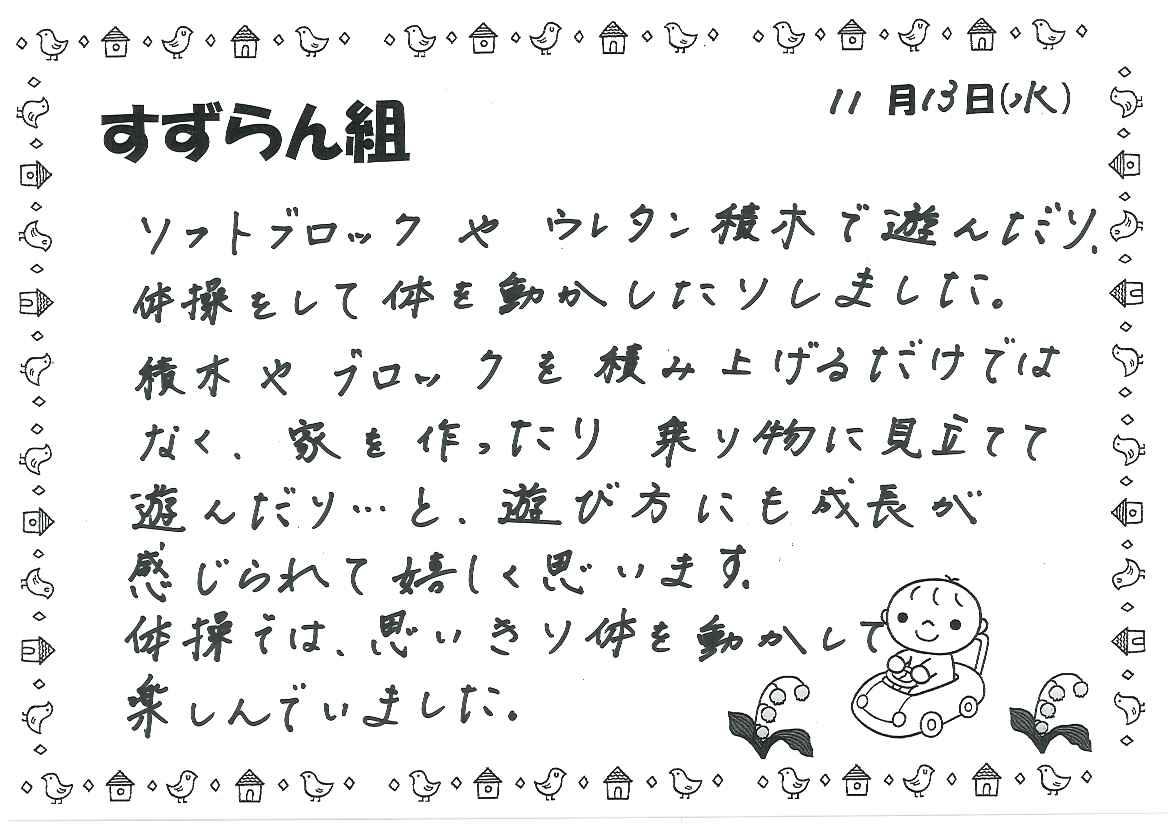 11月13日(水)
すずらん組
ソフトブロックや ウレタン積木で遊んだり、
体操をして体を動かしたりしました。
積木や ブロックを積み上げるだけでは
なく、家を作ったり 乗り物に見立てて
遊んだり…と、遊び方にも成長が
感じられて嬉しく思います。
体操では、思いきり体を動かして
楽しんでいました。